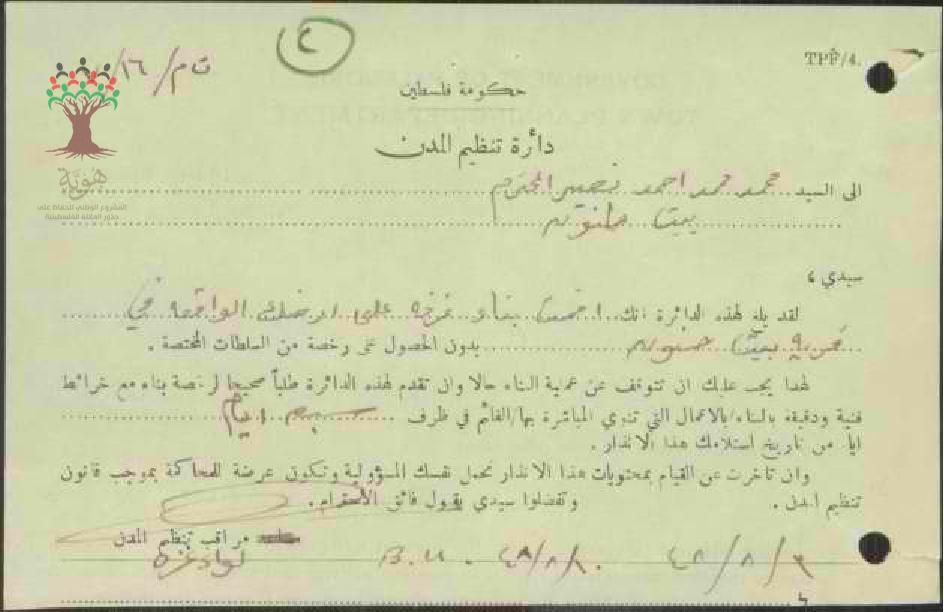 TPP/4.
ت م / ١٦ /
٢
حكومة فلسطين
دائرة تنظيم المدن
هوية
المشروع الوطني للحفاظ على
جذور العائلة الفلسطينية
الى السيد محمد محمد احمد نصير المحترم
بيت حانون
سيدي ،
لقد بلغ لهذه الدائرة انك على ارضك الواقعة في
قرية بيت حانون بدون الحصول على رخصة من السلطات المختصة .
لهذا يجب عليك ان تتوقف عن عملية البناء حالا وان تقدم لهذه الدائرة طلباً صحيحا لرخصة بناء مع خرائط
فنية ودقيقة بالبناء/بالاعمال التي تنوي المباشرة بها/القائم في ظرف سبعة ايام
من تاريخ استلامك هذا الانذار .
وان تأخرت عن القيام بمحتويات هذا الانذار تحمل نفسك المسؤولية وتكون عرضة للمحاكمة بموجب قانون
تنظيم المدن . وتفضلوا سيدي بقبول فائق الاحترام .
مراقب تنظيم المدن
لواء غزة